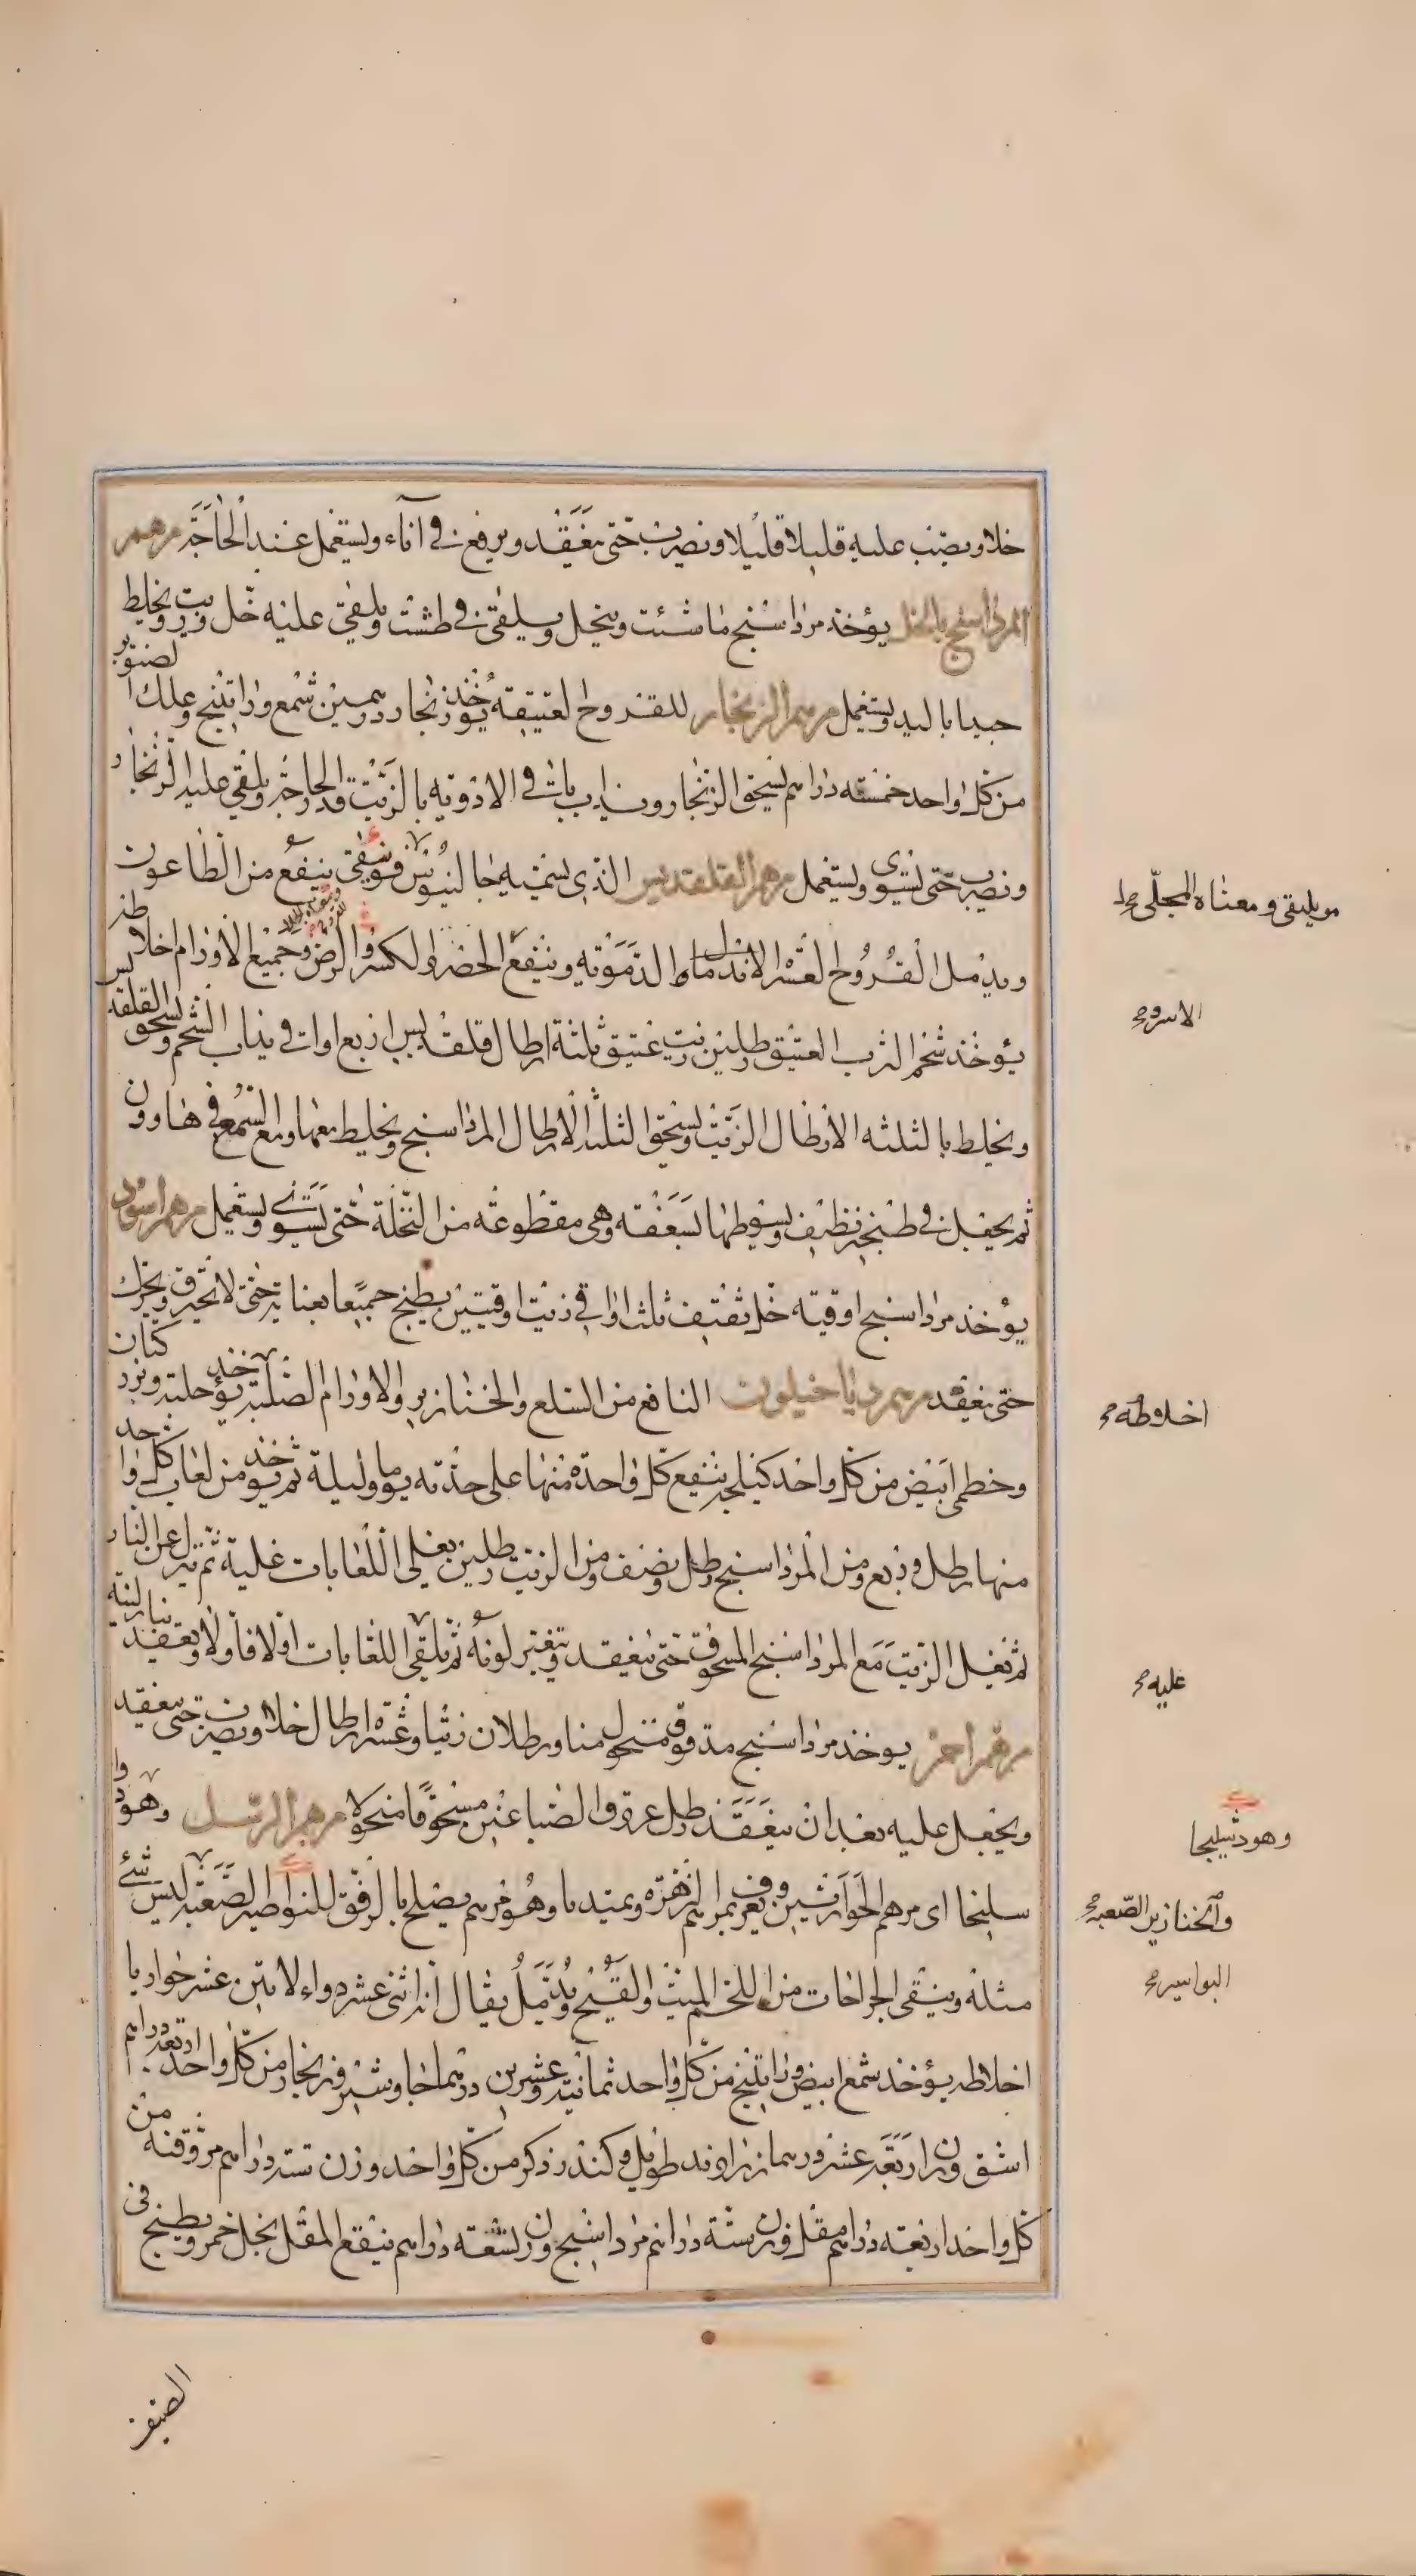 خلا ويصب عليه قليلا قليلا ويضرب حتى ينعقد ويرفع في اناء ويستعمل عند الحاجة مرهم
المرداسنج بالخل يؤخذ مرداسنج ما شئت وينخل ويلقى في طشت ويلقى عليه خل وزيت ويخلط
جيدا باليد ويستعمل مرهم الزنجار للقروح العتيقة يؤخذ زنجار درهمين شمع وراتينج وعلك الصنوبر
من كل واحد خمسة دراهم يسحق الزنجار ويذاب باقي الادوية بالزيت قدر الحاجة ويلقى عليه الزنجار
ويضرب حتى يستوي ويستعمل مرهم القلقديس الذي يسميه جالينوس فونيقي ينفع من الطاعون
مويليقي ومعناه المجلى
ويدمل القروح العسرة الاندمال الدموية وينفع الحضر والكسر والرض وجميع الاورام اخلاطه
الاسر
يؤخذ شحم الثرب العتيق رطلين زيت عتيق ثلثة ارطال قلقديس اربع اواقي يذاب الشحم ويسحق القلقديس
ويخلط بالثلثة الارطال الزيت ويسحق الثلثة الارطال المرداسنج ويخلط معها ومع الشمع في هاون
ثم يجعل في طنجير نظيف ويسوطها بسعفة وهي مقطوعة من النخلة حتى يستوي ويستعمل مرهم اسود
يؤخذ مرداسنج اوقية خل ثقيف ثلث اواقي زيت اوقيتين يطبخ جميعا بعناية حتى لا تحترق ويحرك
حتى ينعقد مرهم دياخيلون النافع من السلع والخنازير والاورام الصلبة يؤخذ حلبة وبزر كتان
اخلاطه
وخطمي ابيض من كل واحد كيلجة ينقع كل واحدة منها على حدته يوما وليلة ثم يؤخذ من لعاب كل واحد
منها رطل وربع ومن المرداسنج رطل ونصف ومن الزيت رطلين يغلي اللعابات غلية ثم ينزل عن النار
ثم يغلى الزيت مع المرداسنج المسحوق حتى ينعقد ويتغير لونه ثم يلقى اللعابات اولا فاولا ويعقد بنار لينة
عليه
مرهم احمر يوخذ مرداسنج مدقوق منخول منا ورطلان زيتا وعشرة ارطال خلا ويضرب حتى ينعقد
ويجعل عليه بعد ان ينعقد رطل عروق الصباغين مسحوقا منخولا مرهم الرسل وهو دوا
وهو دشليحا
سليحا اي مرهم الحواريين ويعرف بمرهم الزهرة وبمنديا وهو مرهم يصلح بالرفق للنواصير الصعبة ليس شيء
والخنازير الصعبة
مثله وينقي الجراحات من اللحم الميت والقيح ويدمل يقال انه اثني عشر دواء لاثني عشر حواريا
البواسير
اخلاطه يؤخذ شمع ابيض وراتينج من كل واحد ثمانية وعشرين درهما جاوشير وزنجار من كل واحد اربعة دراهم
اشق وزن اربعة عشر درهما زراوند طويل وكندر ذكر من كل واحد وزن ستة دراهم مر وقنة من
كل واحد اربعة دراهم مقل وزن ستة دراهم مرداسنج وزن تسعة دراهم ينقع المقل بخل خمر ويطبخ في
الصيفر